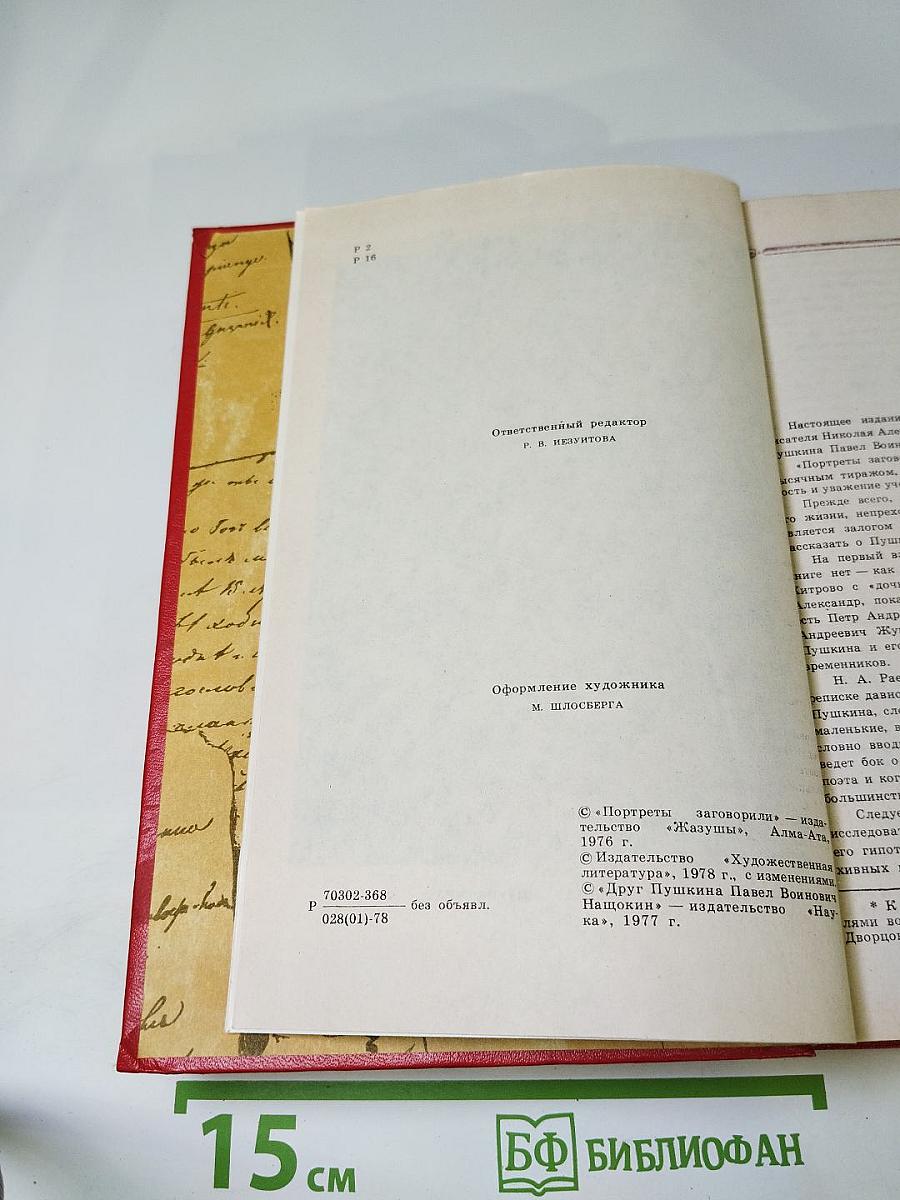 Р 2
Р 16
Ответственный редактор
Р. В. ИЕЗУИТОВА
Оформление художника
М. ШЛОСБЕРГА
© «Портреты заговорили» — изда-
тельство «Жазушы», Алма-Ата,
1976 г.
© Издательство «Художественная
литература», 1978 г., с изменениями.
© «Друг Пушкина Павел Воинович
Нащокин» — издательство «Нау-
ка», 1977 г.
Р 70302-368
028(01)-78 без объявл.
Настоящее издани
исателя Николая Але
ушкина Павел Воин
«Портреты загов
ысячным тиражом,
ость и уважение уч
Прежде всего,
го жизни, непрехо
вляется залогом
ассказать о Пушк
На первый вз
ниге нет — как
Хитрово с «доч
Александр, пока
сть Петр Андр
Андреевич Жу
Пушкина и его
временников.
Н. А. Рае
реписке давно
Пушкина, сле
маленькие, в
словно вводи
ведет бок о
поэта и ког
большинст
Следуе
исследоват
его гипот
хивных
* К
лями во
Дворцо
15 см
БФ БИБЛИОФАН